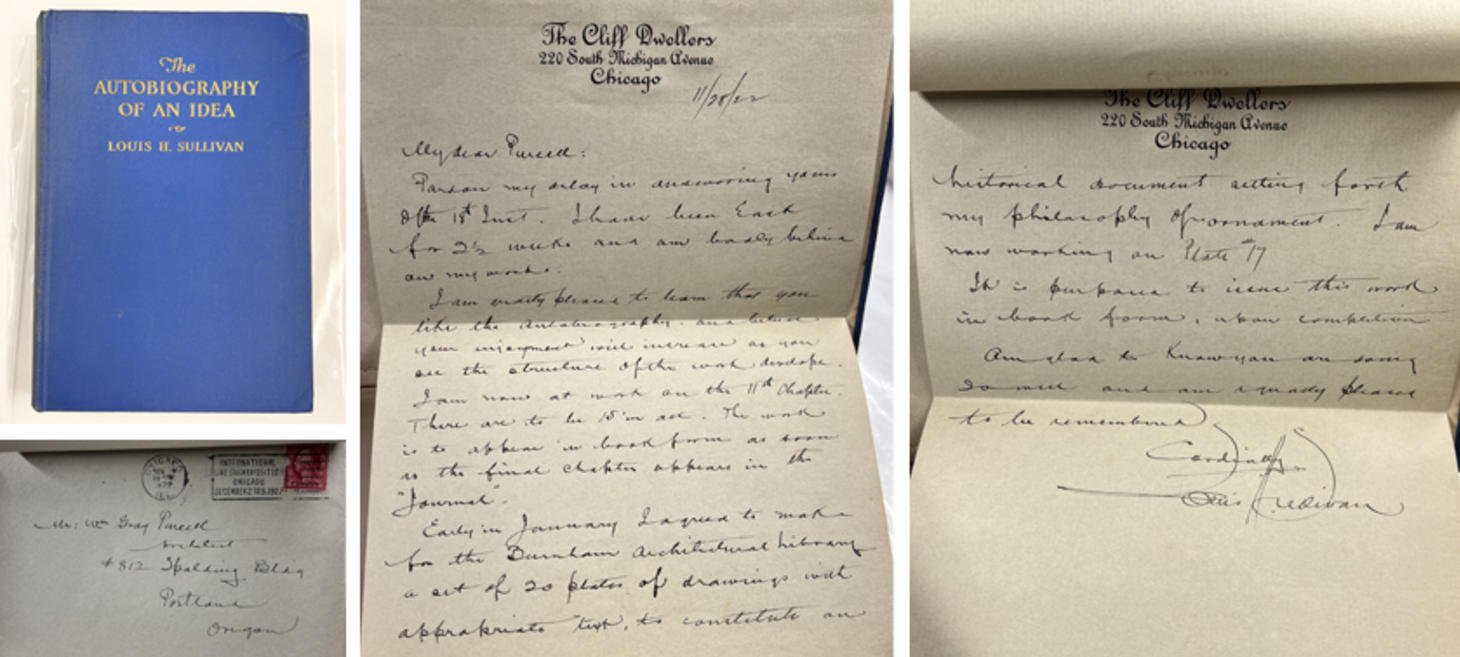 The
AUTOBIOGRAPHY
OF AN IDEA
LOUIS H. SULLIVAN
CHICAGO
ILL
INTERNATIONAL
LIVE STOCK EXPOSITION
CHICAGO
DECEMBER 2 TO 9, 1922
Mr: Wm Gray Purcell
Architect
#812 Spalding Bldg
Portland
Oregon
The Cliff Dwellers
220 South Michigan Avenue
Chicago
11/28/22
My dear Purcell:
Pardon my delay in answering yours
of the 18th Inst. I have been East
for 2½ weeks and am badly behind
on my work.
I am vastly pleased to learn that you
like the Autobiography. and believe
your enjoyment will increase as you
see the structure of the work develope.
I am now at work on the 11th Chapter.
There are to be 15 in all. The work
is to appear in book form as soon
as the final chapter appears in the
"Journal".
Early in January I agreed to make
for the Burnham Architectural Library
a set of 20 plates of drawings with
appropriate text, to constitute an
The Cliff Dwellers
220 South Michigan Avenue
Chicago
historical document setting forth
my philosophy of ornament. I am
now working on Plate #17
It is purposed to issue this work
in book form, upon completion
Am glad to know you are doing
so well and am equally pleased
to be remembered
Cordially
Louis H. Sullivan